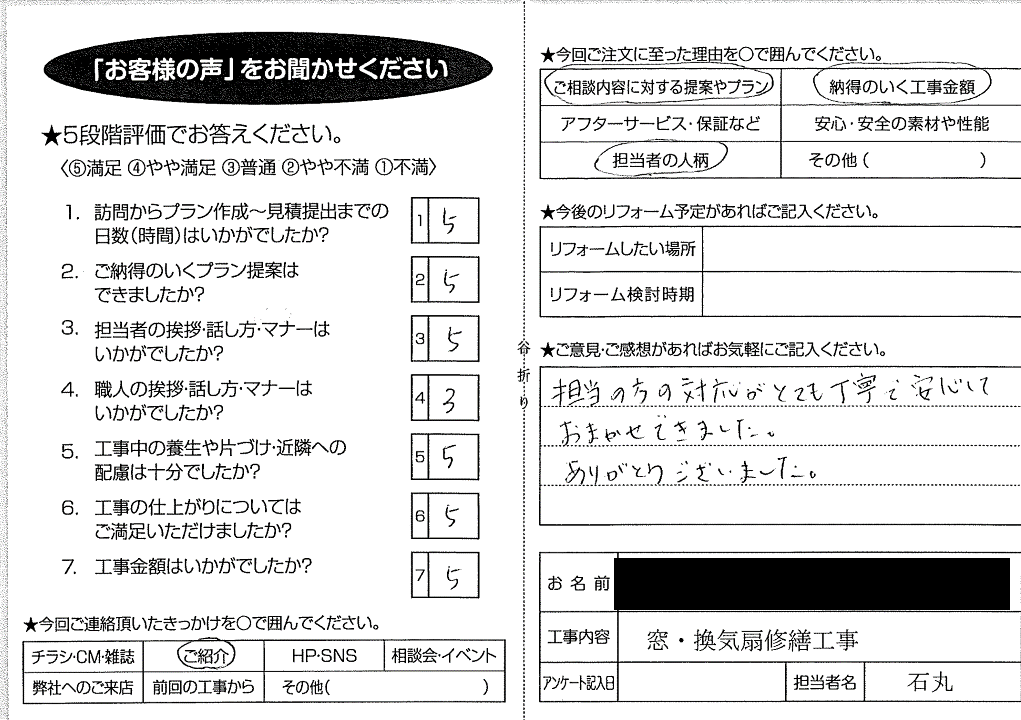 「お客様の声」をお聞かせください
★5段階評価でお答えください。
〈⑤満足 ④やや満足 ③普通 ②やや不満 ①不満〉
1. 訪問からプラン作成〜見積提出までの
日数(時間)はいかがでしたか?
1 5
2. ご納得のいくプラン提案は
できましたか?
2 5
3. 担当者の挨拶・話し方・マナーは
いかがでしたか?
3 5
4. 職人の挨拶・話し方・マナーは
いかがでしたか?
4 3
5. 工事中の養生や片づけ・近隣への
配慮は十分でしたか?
5 5
6. 工事の仕上がりについては
ご満足いただけましたか?
6 5
7. 工事金額はいかがでしたか?
7 5
★今回ご連絡頂いたきっかけを○で囲んでください。
チラシ・CM・雑誌 ご紹介 HP・SNS 相談会・イベント
弊社へのご来店 前回の工事から その他( )
谷折り
★今回ご注文に至った理由を○で囲んでください。
ご相談内容に対する提案やプラン 納得のいく工事金額
アフターサービス・保証など 安心・安全の素材や性能
担当者の人柄 その他( )
★今後のリフォーム予定があればご記入ください。
リフォームしたい場所
リフォーム検討時期
★ご意見・ご感想があればお気軽にご記入ください。
担当の方の対応がとても丁寧で安心して
おまかせできました。
ありがとうございました。
お名前
工事内容 窓・換気扇修繕工事
アンケート記入日 担当者名 石丸